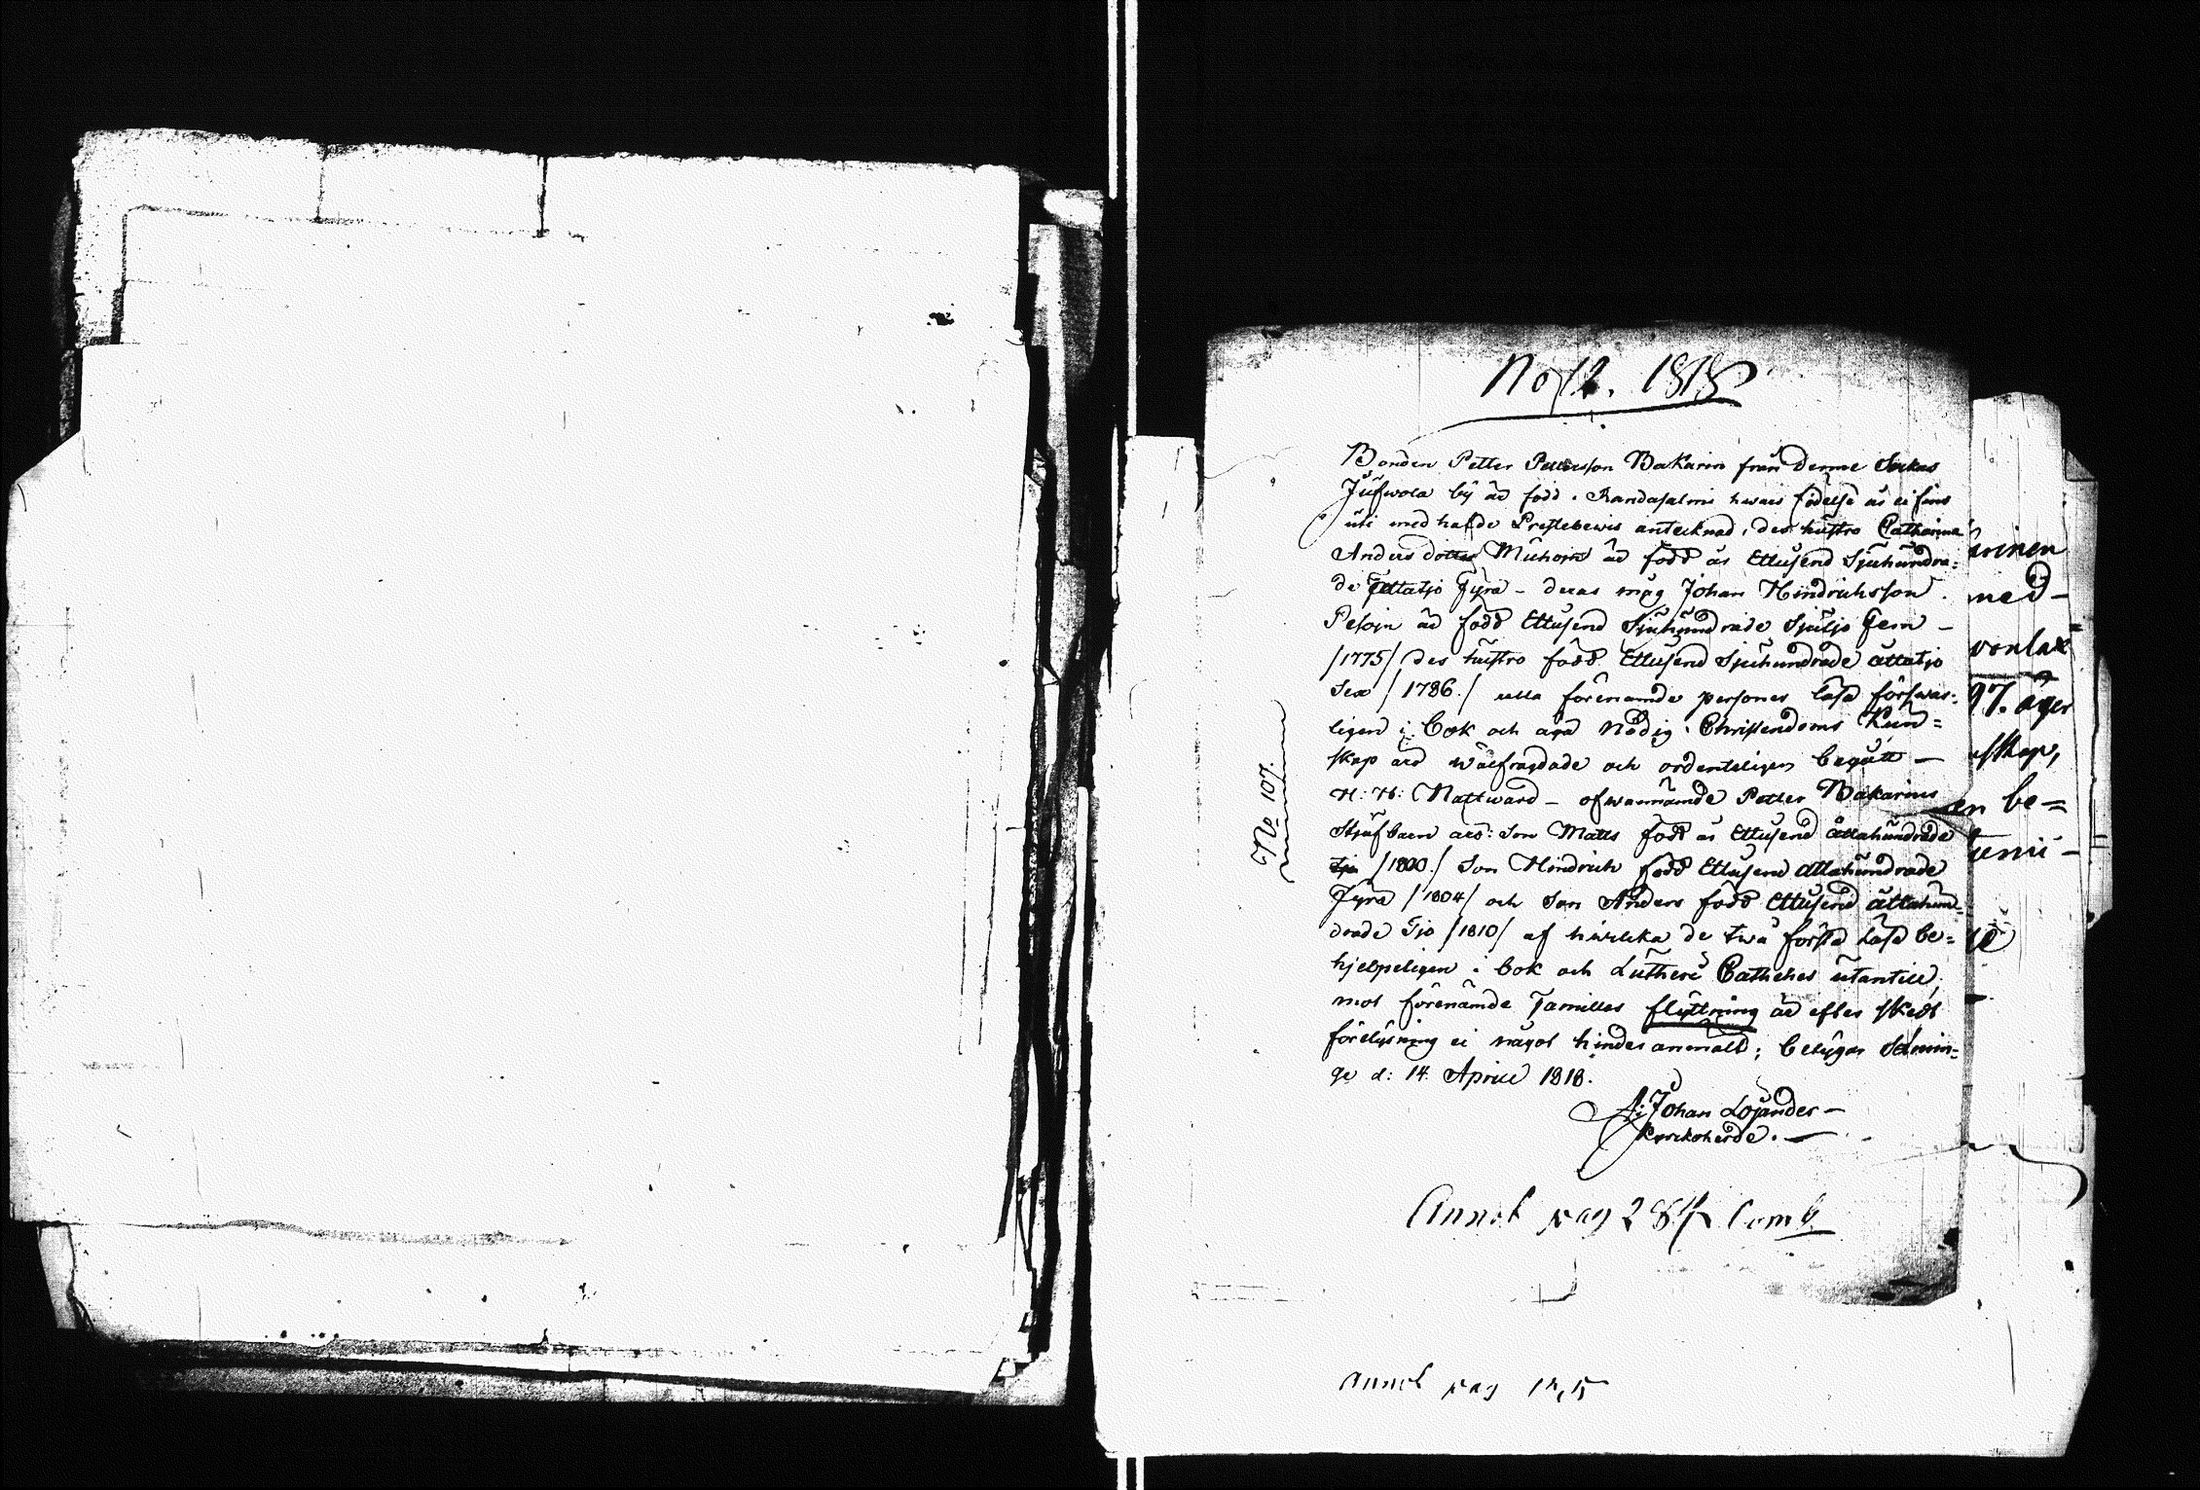 No 12. 1818
Bonden Petter Pettersson Makarin från denne Sockns
Jufwola by är född i Randasalmi hwars födelse år ei fins
uti medhafde Prestebewis antecknad, des hustro Catharina
Anders dotter Muhoin är född år Ettusend Sjuhundra=
de Fyra - deras måg Johan Hindrichsson
Pesoin är född Ettusend Sjuhundrade Sjutjo Fem -
/1775/ des hustro född Ettusend Sjuhundrade åttatjo
Sex /1786./ alla förenämde personer läsa förswar=
ligen i bok och äga Nödig Christendoms Kun=
skap äro wälfrägdade och ordenteligen begått -
H: H: Nattward - ofwannämde Petter Makarins
Stjufbarn äro: Son Matts född år Ettusend åttahundrade
/1800./ Son Hindrich född Ettusend åttahundrade
Fyra /1804/ och Son Anders född Ettusend åttahun=
drade Tjo /1810/ af hwilcka de twå första läsa be=
hjelpeligen i bok och Lutheri Cathehes utantill,
mot förenämde Familles flyttning är efter skedt
förelysning ei något hinder anmält; betygar Sämin=
ge d: 14 Aprill 1818.
Johan Lojander -
Kyrkoherde. -
Annot pag 284 Comb
annot pag
No 107.
winen
med -
vonlax
97. äger
skap,
en be=